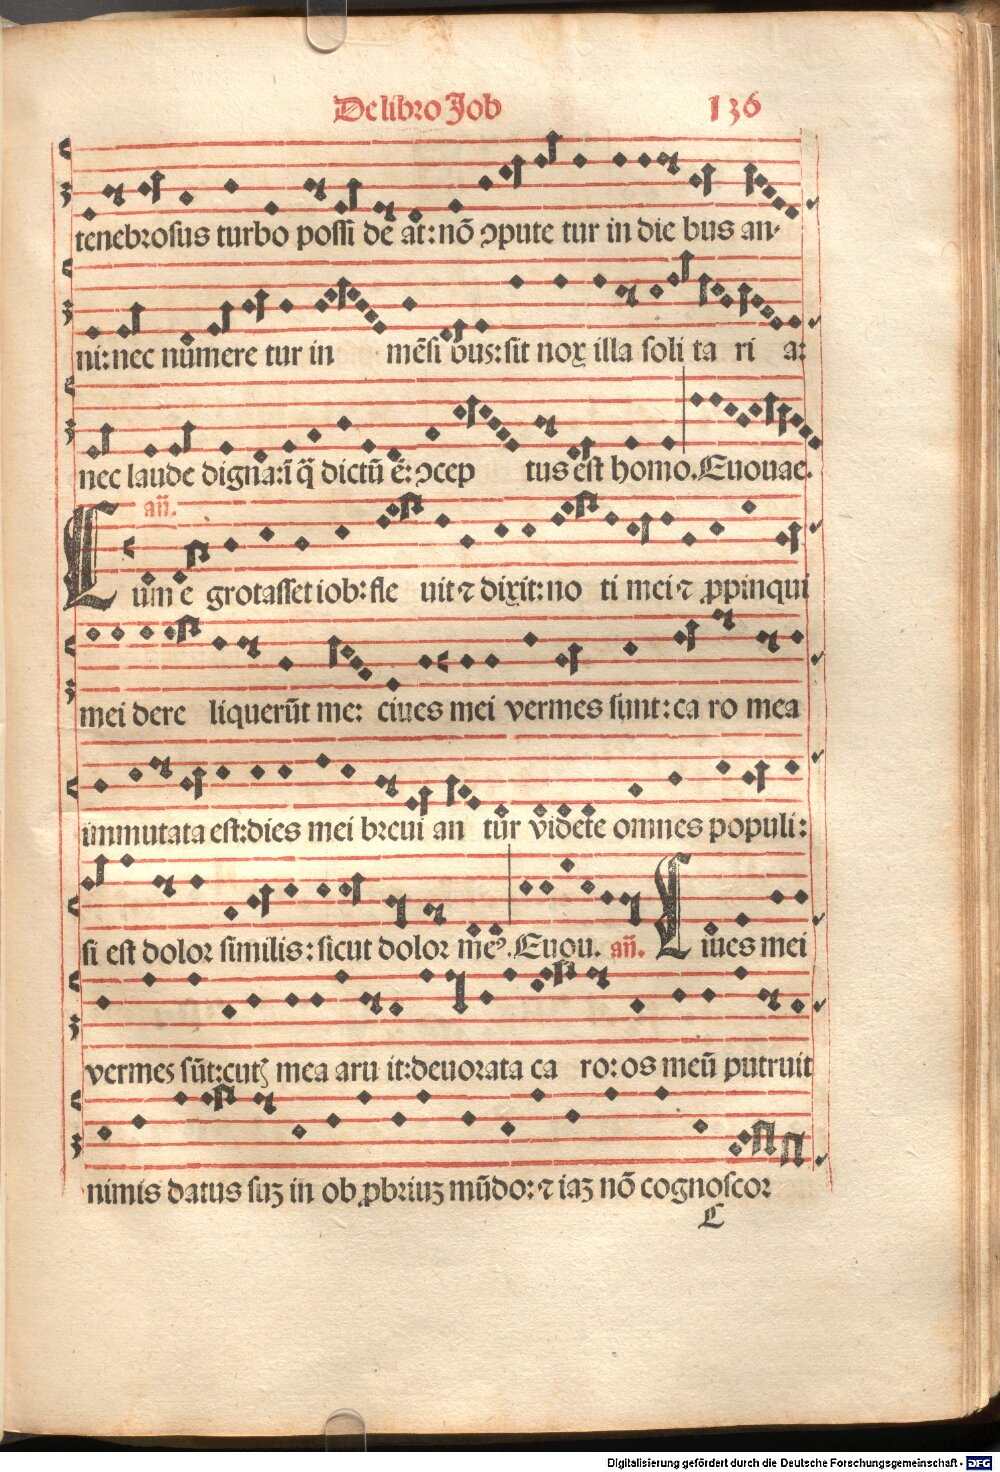 De libro Job 136
tenebrosus turbo possi de at: nō ↄpute tur in die bus an-
ni: nec nūmere tur in mēsi bus: sit nox illa soli ta ri a:
nec laude digna: ī q̄ dictū ē: ↄcep tus est homo. Euouae.
añ.
Cum e grotasset iob: fle uit ⁊ dixit: no ti mei ⁊ ꝓpinqui
mei dere liquerūt me: ciues mei vermes sunt: ca ro mea
immutata est: dies mei breui an tur videte omnes populi:
si est dolor similis: sicut dolor meꝰ. Euou. añ. Ciues mei
vermes sūt: cutꝭ mea aru it: deuorata ca ro: os meū putruit
nimis datus suꝫ in ob ꝓbriuꝫ mūdo: ⁊ iaꝫ nō cognoscor
C
Digitalisierung gefördert durch die Deutsche Forschungsgemeinschaft - DFG